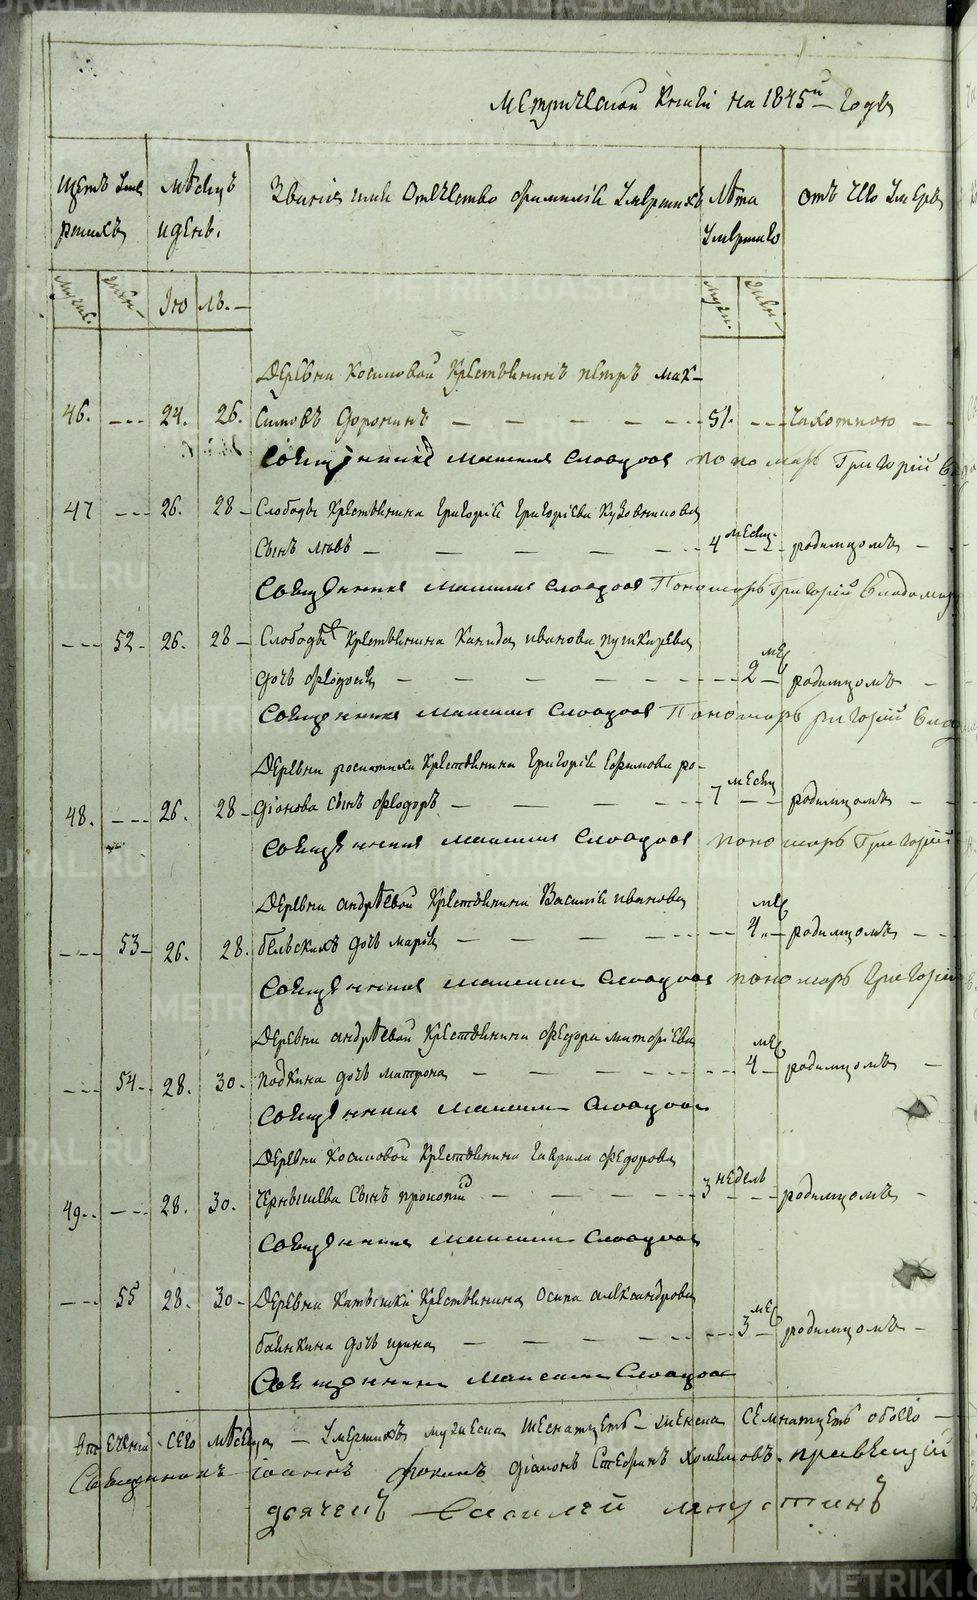 Метрической книги на 1845й годъ
щетъ умер
ршихъ
Мѣсяцъ
и день.
Званiя имя отечество фамилiи умершихъ
Лѣта
умершего
отъ чего умеръ
мужес.
женс.
Iю ль.
мужс.
женс.
Деревни Косиковой крестьянинъ петръ мак-
46. 24. 26. симовъ Доронинъ 51. чахоткою
Священникъ Максимъ Словцовъ пономарь Григорiй
47 26. 28 Слободы крестьянина Григорiя Григорiева Кузовникова
сынъ левъ 4 месяц. родимцомъ
Священникъ Максимъ Словцовъ Пономарь Григорiй Владимир
52 26. 28 Слободы крестьянина Канида иванова пушкарева
дочь Федосiя 2 мец родимцомъ
Священникъ Максимъ Словцовъ Пономарь Григорiй
Деревни крестьянина Григорiя Ефимова ро-
48. 26. 28 дiонова сынъ Федоръ 7 месяц родимцомъ
Священникъ Максимъ Словцовъ пономарь Григорiй
Деревни андрѣевой крестьянина Василiя иванова
53 26. 28. бѣльскихъ дочь марiя 4 мец родимцомъ
Священникъ Максимъ Словцовъ пономарь Григорiй
Деревни андрѣевой крестьянина Федора
54 28. 30. дочь матрона 4 мец родимцомъ
Священникъ Максимъ Словцовъ
Деревни Косиковой крестьянина Гаврила Федорова
49. 28. 30. Чернышева сынъ прокопiй 3 недель родимцомъ
Священникъ Максимъ Словцовъ
55 28. 30 Деревни крестьянина осипа александрова
байнкина дочь ирина 3 мец родимцомъ
Священникъ Максимъ Словцовъ
въ теченiи сего мѣсяца умершихъ мужеска шеснатцеть женска семнатцеть обоего
Священникъ Iоаннъ Фокинъ дiаконъ Стефанъ Хомяковъ.
дьячекъ Василей
METRIKI.GASO-URAL.RU